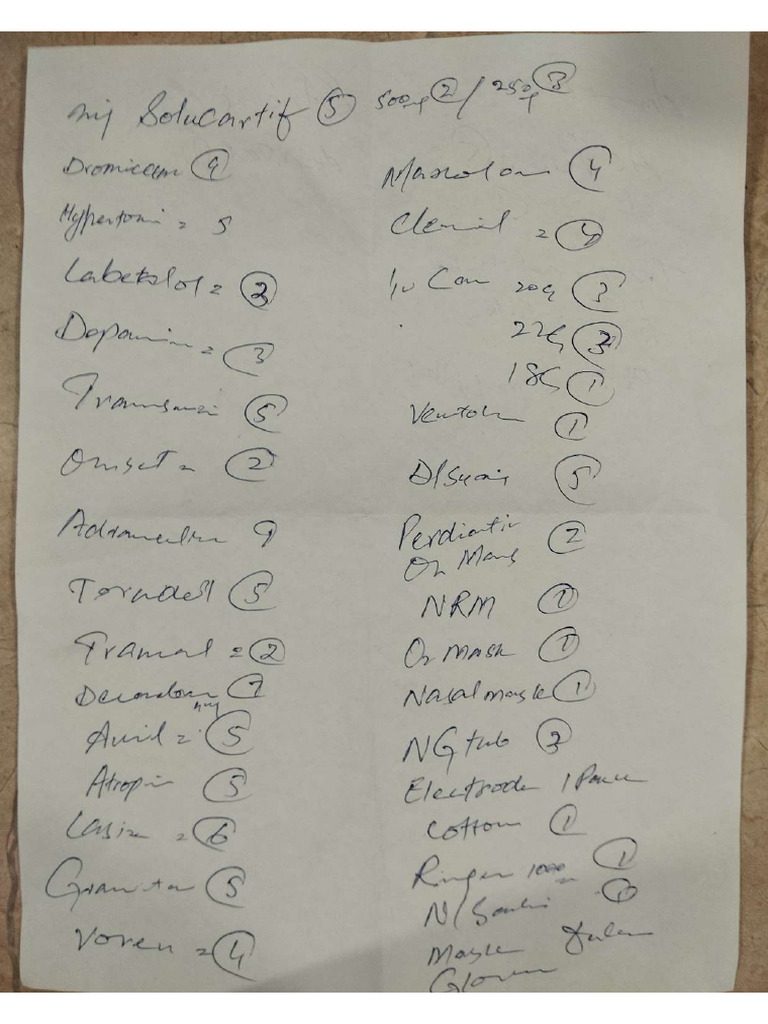 inj Solucartif 5 500mg 2 / 250mg 3
Dromicam 9
Hypertoni = 5
Labetalol = 2
Dopamin = 3
Transamin 5
Onset = 2
9
Toradell 5
Tramal = 2
Decadron inj 7
Avil = 5
Atropin 5
Lasix = 6
5
Voren = 4
Maxolon 4
Clenil = 4
I/v Can 20G 3
22G 3
18G 1
Ventolin 1
D/Syring 5
2
O2 Mask
NRM 1
O2 mask 1
Nasal mask 1
NG tub 3
Electrode 1
Cotton 1
Ringer 1000 1
N/Salin 1
Mask
Gloves